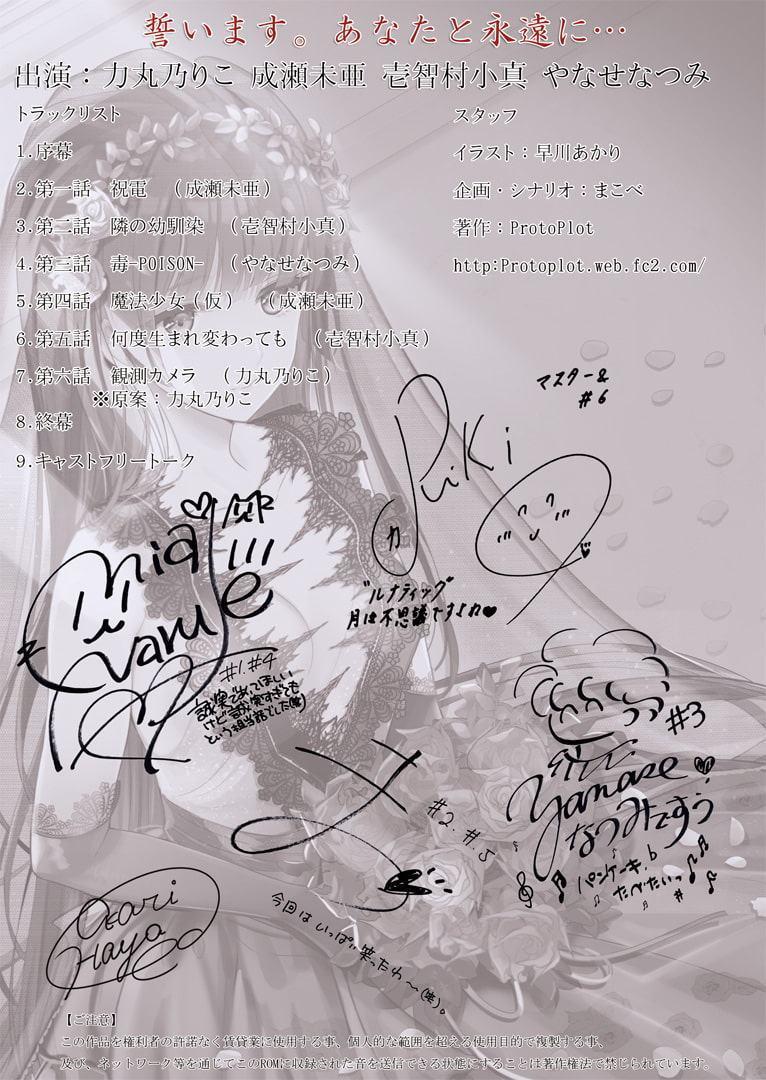 誓います。あなたと永遠に…
出演：力丸乃りこ 成瀬未亜 壱智村小真 やなせなつみ
トラックリスト
1.序幕
2.第一話　祝電　（成瀬未亜）
3.第二話　隣の幼馴染　（壱智村小真）
4.第三話　毒-POISON-　（やなせなつみ）
5.第四話　魔法少女（仮）　（成瀬未亜）
6.第五話　何度生まれ変わっても　（壱智村小真）
7.第六話　観測カメラ　（力丸乃りこ）
※原案：力丸乃りこ
8.終幕
9.キャストフリートーク
スタッフ
イラスト：早川あかり
企画・シナリオ：まこべ
著作：ProtoPlot
http:Protoplot.web.fc2.com/
マスター&
#6
RiKi
力
"ルナティック"
月は不思議ですよね♥
Mia
Naruse
#1.#4
誠実であってほしい
けど誠実すぎても
という担当話でした(笑)
#3
Yamase
なつみですぅ
パンケーキ♭
たべたいっ
#2.#.5
今回はいっぱい笑ったわ〜(笑)。
Acari
Haya
【ご注意】
この作品を権利者の許諾なく賃貸業に使用する事、個人的な範囲を超える使用目的で複製する事、
及び、ネットワーク等を通じてこのROMに収録された音を送信できる状態にすることは著作権法で禁じられています。